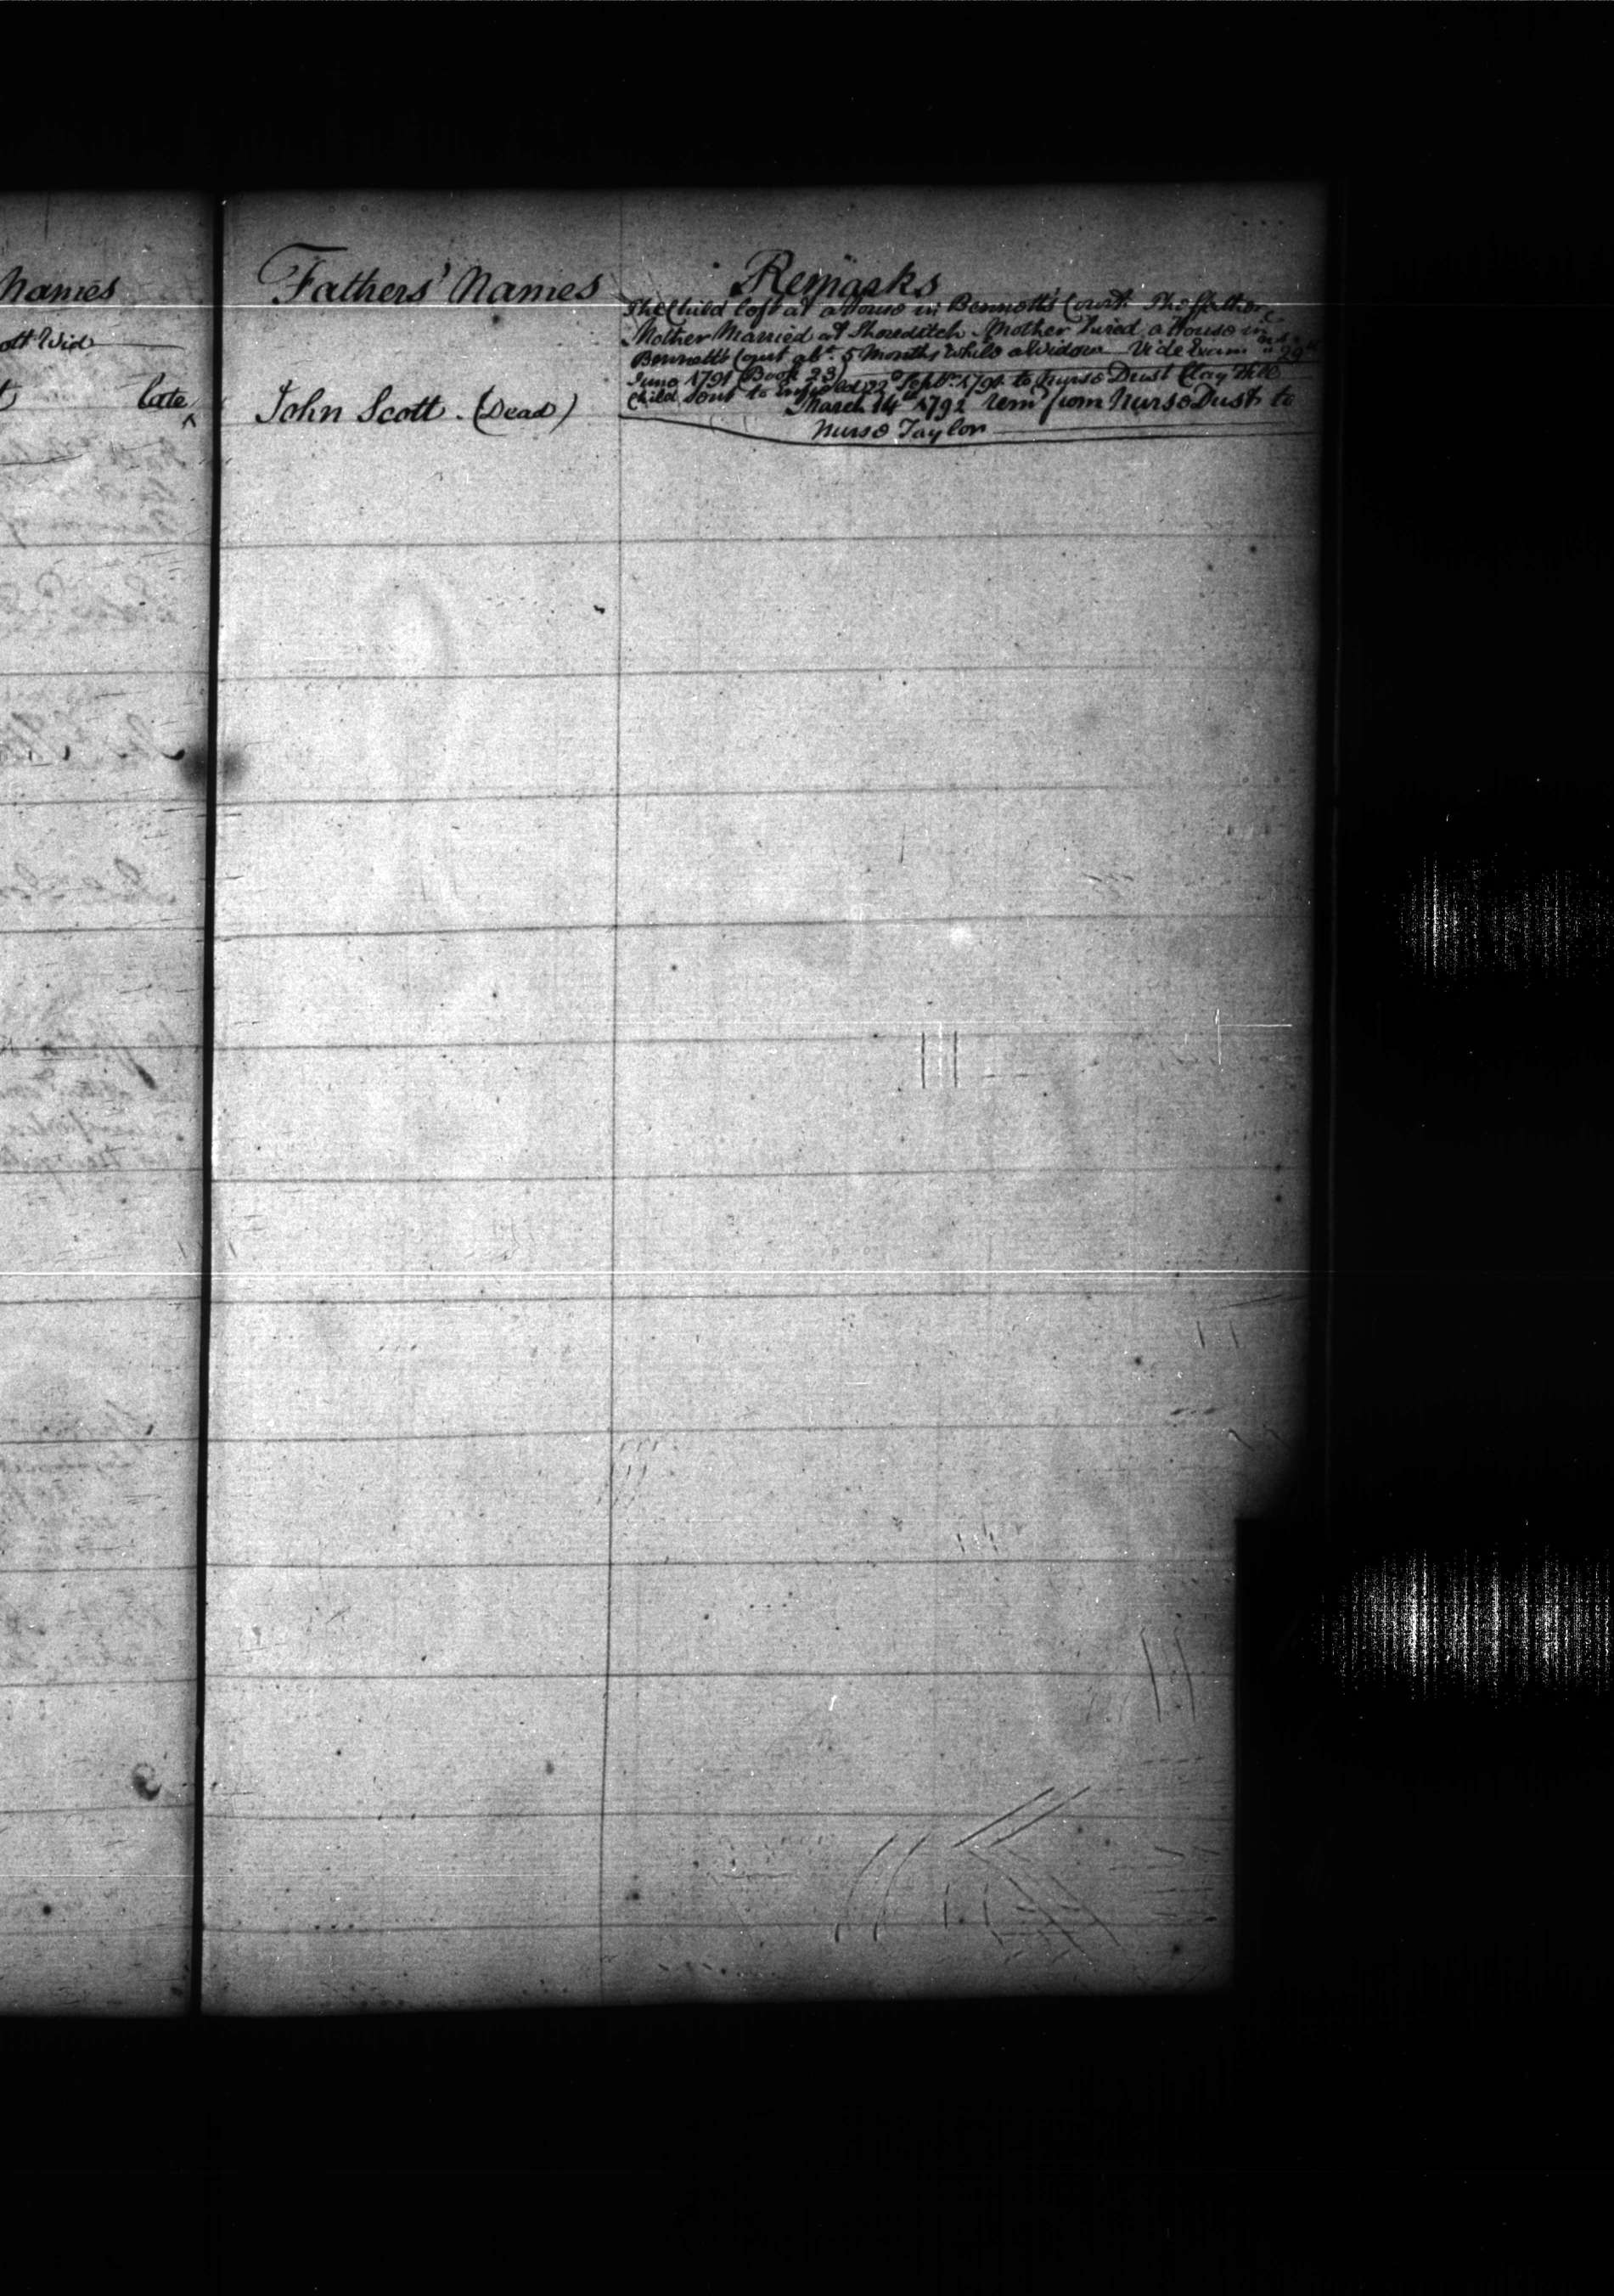 Names
Fathers' Names
Remarks
ott Wid
late
John Scott . (Dead)
The Child left at a House in Bennetts Court. The Father &
Mother Married at Shoreditch - Mother hired a House in
Bennetts Court abt. 5 Months while a Widow Vide Exam 29
June 1791 (Book 23)
Child sent to 22d Septr. 1791 to Nurse Dust Clay Hill
March 14th 1792 Rem'd from Nurse Dust to
Nurse Taylor